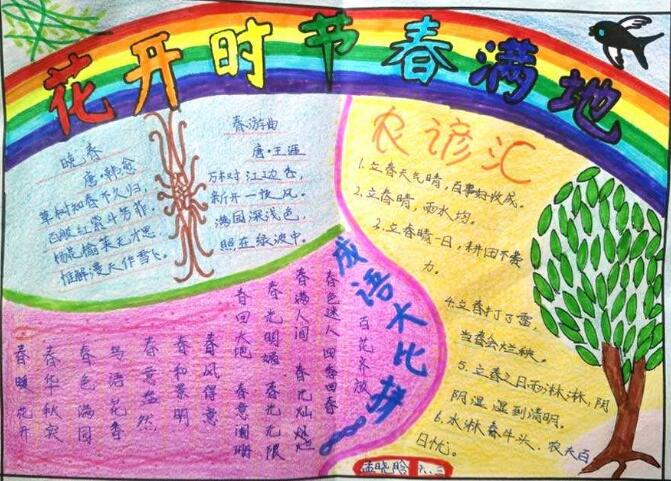 花开时节春满地
晚春
唐·韩愈
草树知春不久归，
百般红紫斗芳菲。
杨花榆荚无才思，
惟解漫天作雪飞。
春游曲
唐·王涯
万树江边杏，
新开一夜风。
满园深浅色，
照在绿波中。
农谚汇
1.立春天气晴，百事好收成。
2.立春晴，雨水均。
3.立春晴一日，耕田不费
力。
4.立春打了雷，
当春会烂秧。
5.立春之日雨淋淋，阴
阴湿湿到清明。
6.水淋春牛头，农夫百
日忧。
成语大比拼
百花齐放
春色迷人 四季回春
春满人间 春光灿烂
春光明媚 春光无限
春回大地 春意阑珊
春风得意
春和景明
春意盎然
鸟语花香
春色满园
春华秋实
春暖花开
孟晓晗 六、三